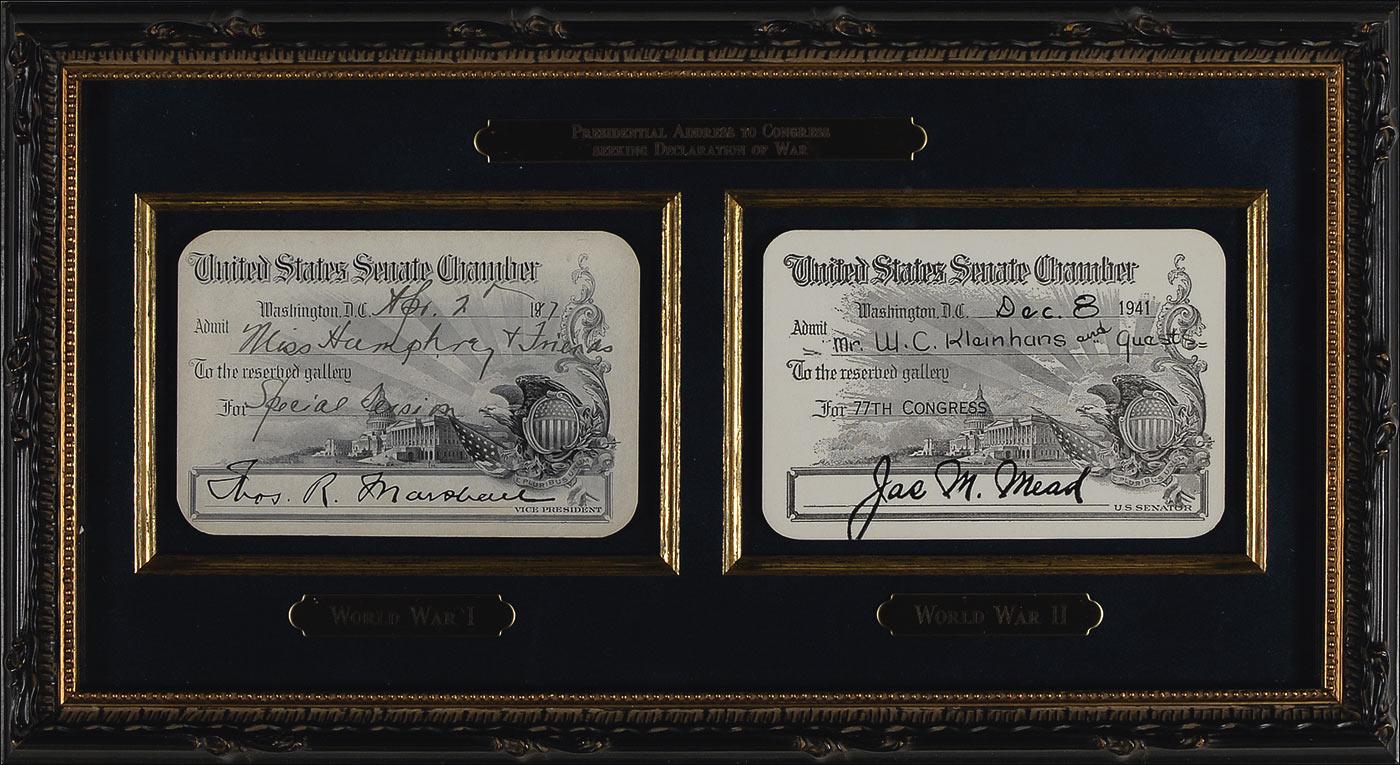 Presidential Address to Congress
seeking Declaration of War
United States Senate Chamber
Washington, D.C. Apr. 2 187
Admit Miss Humphrey & Friends
To the reserved gallery
For Special Session
E PLURIBUS
Thos. R. Marshall
VICE PRESIDENT
World War I
United States Senate Chamber
Washington, D.C. Dec. 8 1941
Admit Mr. W.C. Kleinhans and guests
To the reserved gallery
For 77TH CONGRESS
E PLURIBUS
Jas M. Mead
U.S. SENATOR
World War II